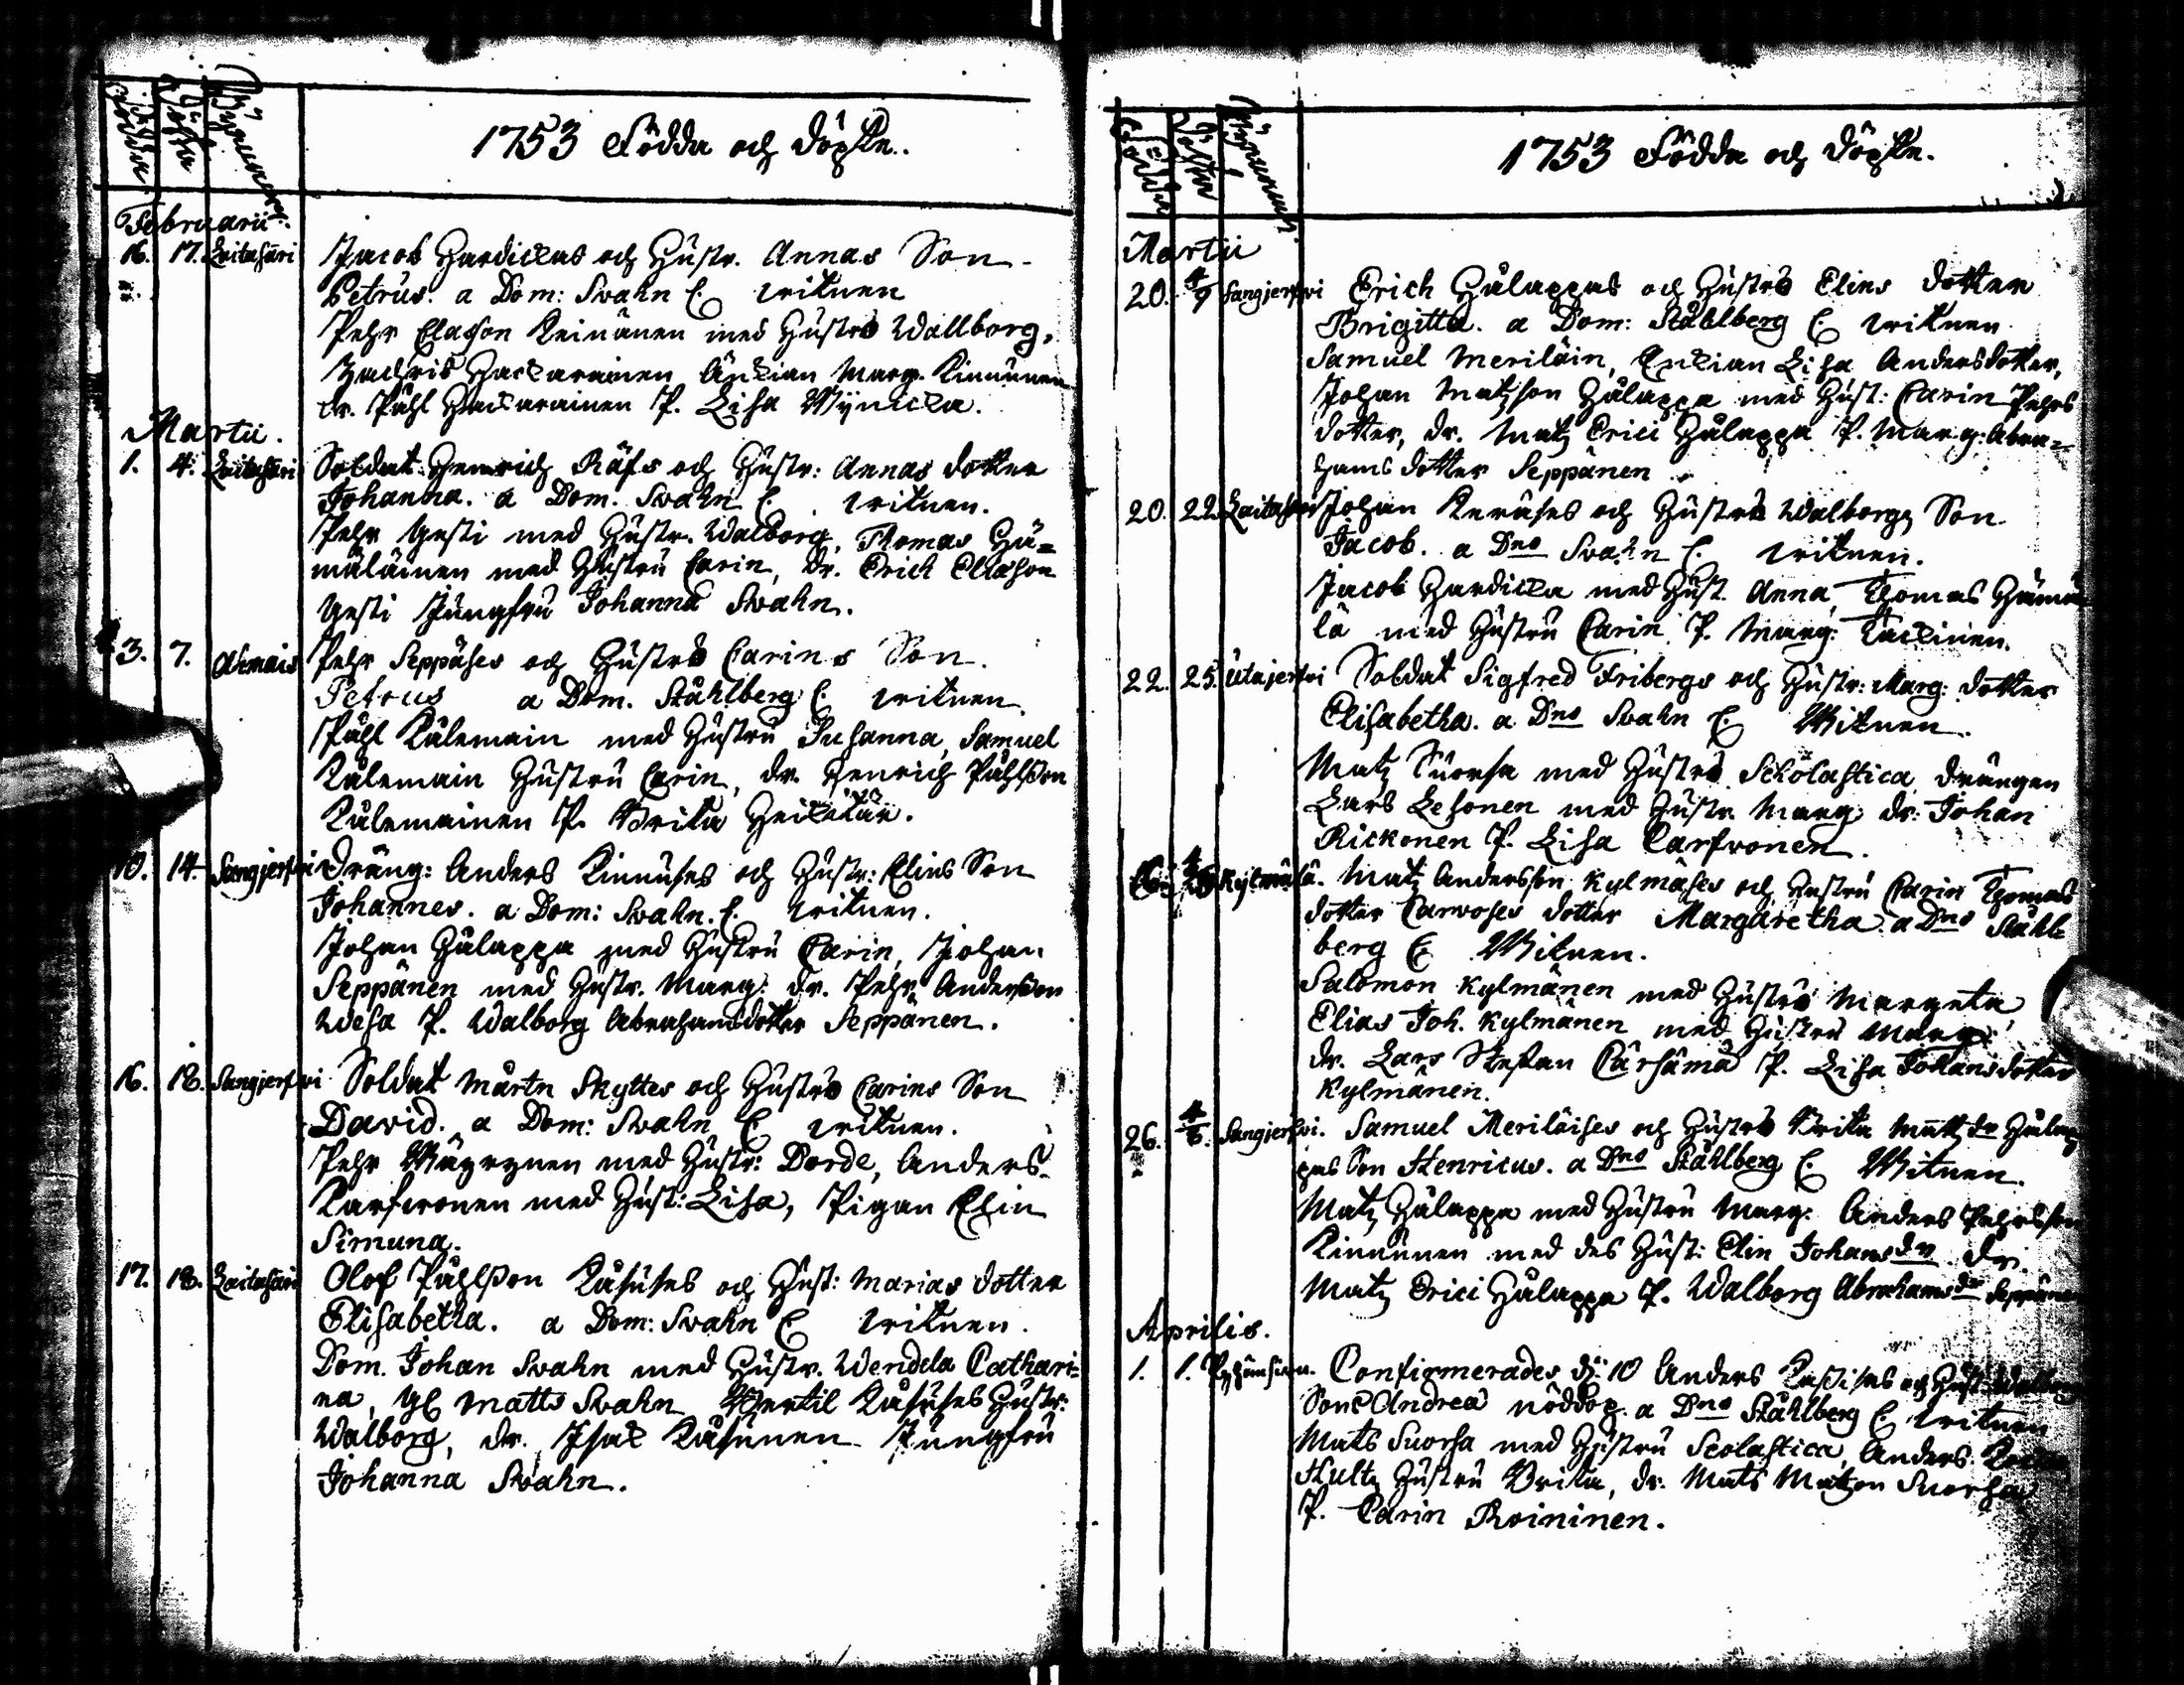 Födde
Döpte
Byarnas
1753 Födda och Döpte.
Februarii.
16. 17. Laitasari Jacob Hardickas och Hustr. Annas Son
Petrus. a Dom: Svahn C. Witnen
Pehr Elasson Keinänen med Hustrů Wallborg,
Zachris Hackarainen Änkian Marg. Kinnunen
Dr. Påhl Hackarainen P. Lisa Mÿnicka.
Martii.
1. 4. Laitasari Soldat Henrich Räfs och Hustr: Annas dotter
Johanna. a Dom. Svahn C. Witnen.
Pehr Yesti med Hustr. Walborg, Thomas Hä=
mäläinen med Hustru Carin, Dr. Erich Elasson
Yesti Jungfru Johanna Swahn.
3. 7. Ahmais Pehr Seppäses och Hustrus Carins Son.
Petrus a Dom. Ståhlberg C. Witnen.
Påhl Kälemain med Hustru Susanna, Samuel
Kälemain Hustru Carin, dr. Henrich Påhlsson
Kälemainen P. Brita Heikitär.
10. 14. Sangjerfwi Dräng: Anders Kinnuses och Hustr: Elins Son
Johannes. a Dom: Svahn. C. Witnen.
Johan Hålappa med Hustru Carin, Johan
Seppänen med Hustr. Marg: dr. Pehr Andersson
Wesa P. Walborg Abrahamsdotter Seppänen.
16. 18. Sangjerfwi Soldat Mårtn Skyttes och Hustrus Carins Son
David. a Dom: Svahn C. Witnen.
Pehr Mäyrynen med Hustr: Dorde, Anders
Karfwonen med Hust: Lisa, Pigan Elin
Simuna.
17. 18. Laitasari Olof Påhlsson Käsuses och Hust: Marias dotter
Elisabetha. a Dom: Svahn C. Witnen.
Dom. Johan Svahn med Hustr. Wendela Cathari=
na, Yl Matts Svahn Bertil Käsuses Hustr:
Walborg, dr. Isak Käsunen Jungfru
Johanna Swahn.
Födde
Döpte
Byarnas
1753 Födda och Döpte.
Martii
20. 4/9 Sangjerfwi Erich Hålappas och Hustrus Elins dotter
Brigitta. a Dom: Ståhlberg C. Witnen.
Samuel Meriläin, Enkian Lisa Andersdotter,
Johan Matzson Hålappa med Hust: Carin Pehrs
dotter, dr. Matz Erici Hålappa P. Marg: Abra=
hams dotter Seppänen
20. 22. Laitasari Johan Keräses och Hustrus Walborgs Son
Jacob. a Dno Svahn C. Witnen.
Jacob Hardicka med Hust. Anna, Thomas Hämä
lä med Hustru Carin P. Marg: Tackinen.
22. 25. Utajerfwi Soldat Sigfred Fribergs och Hustr: Marg: dotter
Elisabetha. a Dno Svahn C. Witnen.
Matz Suorsa med Hustru Scholastica, Drängen
Lars Lesonen med Hustr. Marg: dr: Johan
Rickonen P. Lisa Carfvonen.
Kylmälä. Matz Andersson Kylmäses och Hustru Carin Thomas
dotter Carvoses dotter Margaretha. a Dno Ståhl=
berg C. Witnen.
Salomon Kylmänen med Hustru Margeta
Elias Joh. Kylmänen med Hustru Marg:
dr. Lars Stephan Cärsämä P. Lisa Johansdotter
Kylmänen.
26. 4/8. Sangjerfwi. Samuel Meriläises och Hustrus Brita Mattz dr Hålap
pas Son Henricus. a Dno Ståhlberg C. Witnen.
Matz Hålappa med Hustru Marg: Anders Pehrsson
Kinnunen med des Hust: Elin Johansdr dr.
Matz Erici Hålappa P. Walborg Abrahamsdr Seppänen
Aprilis.
1. 1. Confirmerades d: 10 Anders och Hust: Walborgs
Sons Andrea nöddop. a Dno Ståhlberg C. Witnen
Mats Suorsa med Hustru Scolastica, Anders
Hultz Hustru Brita, dr. Mats Matzon Suorsa
P. Carin Roininen.